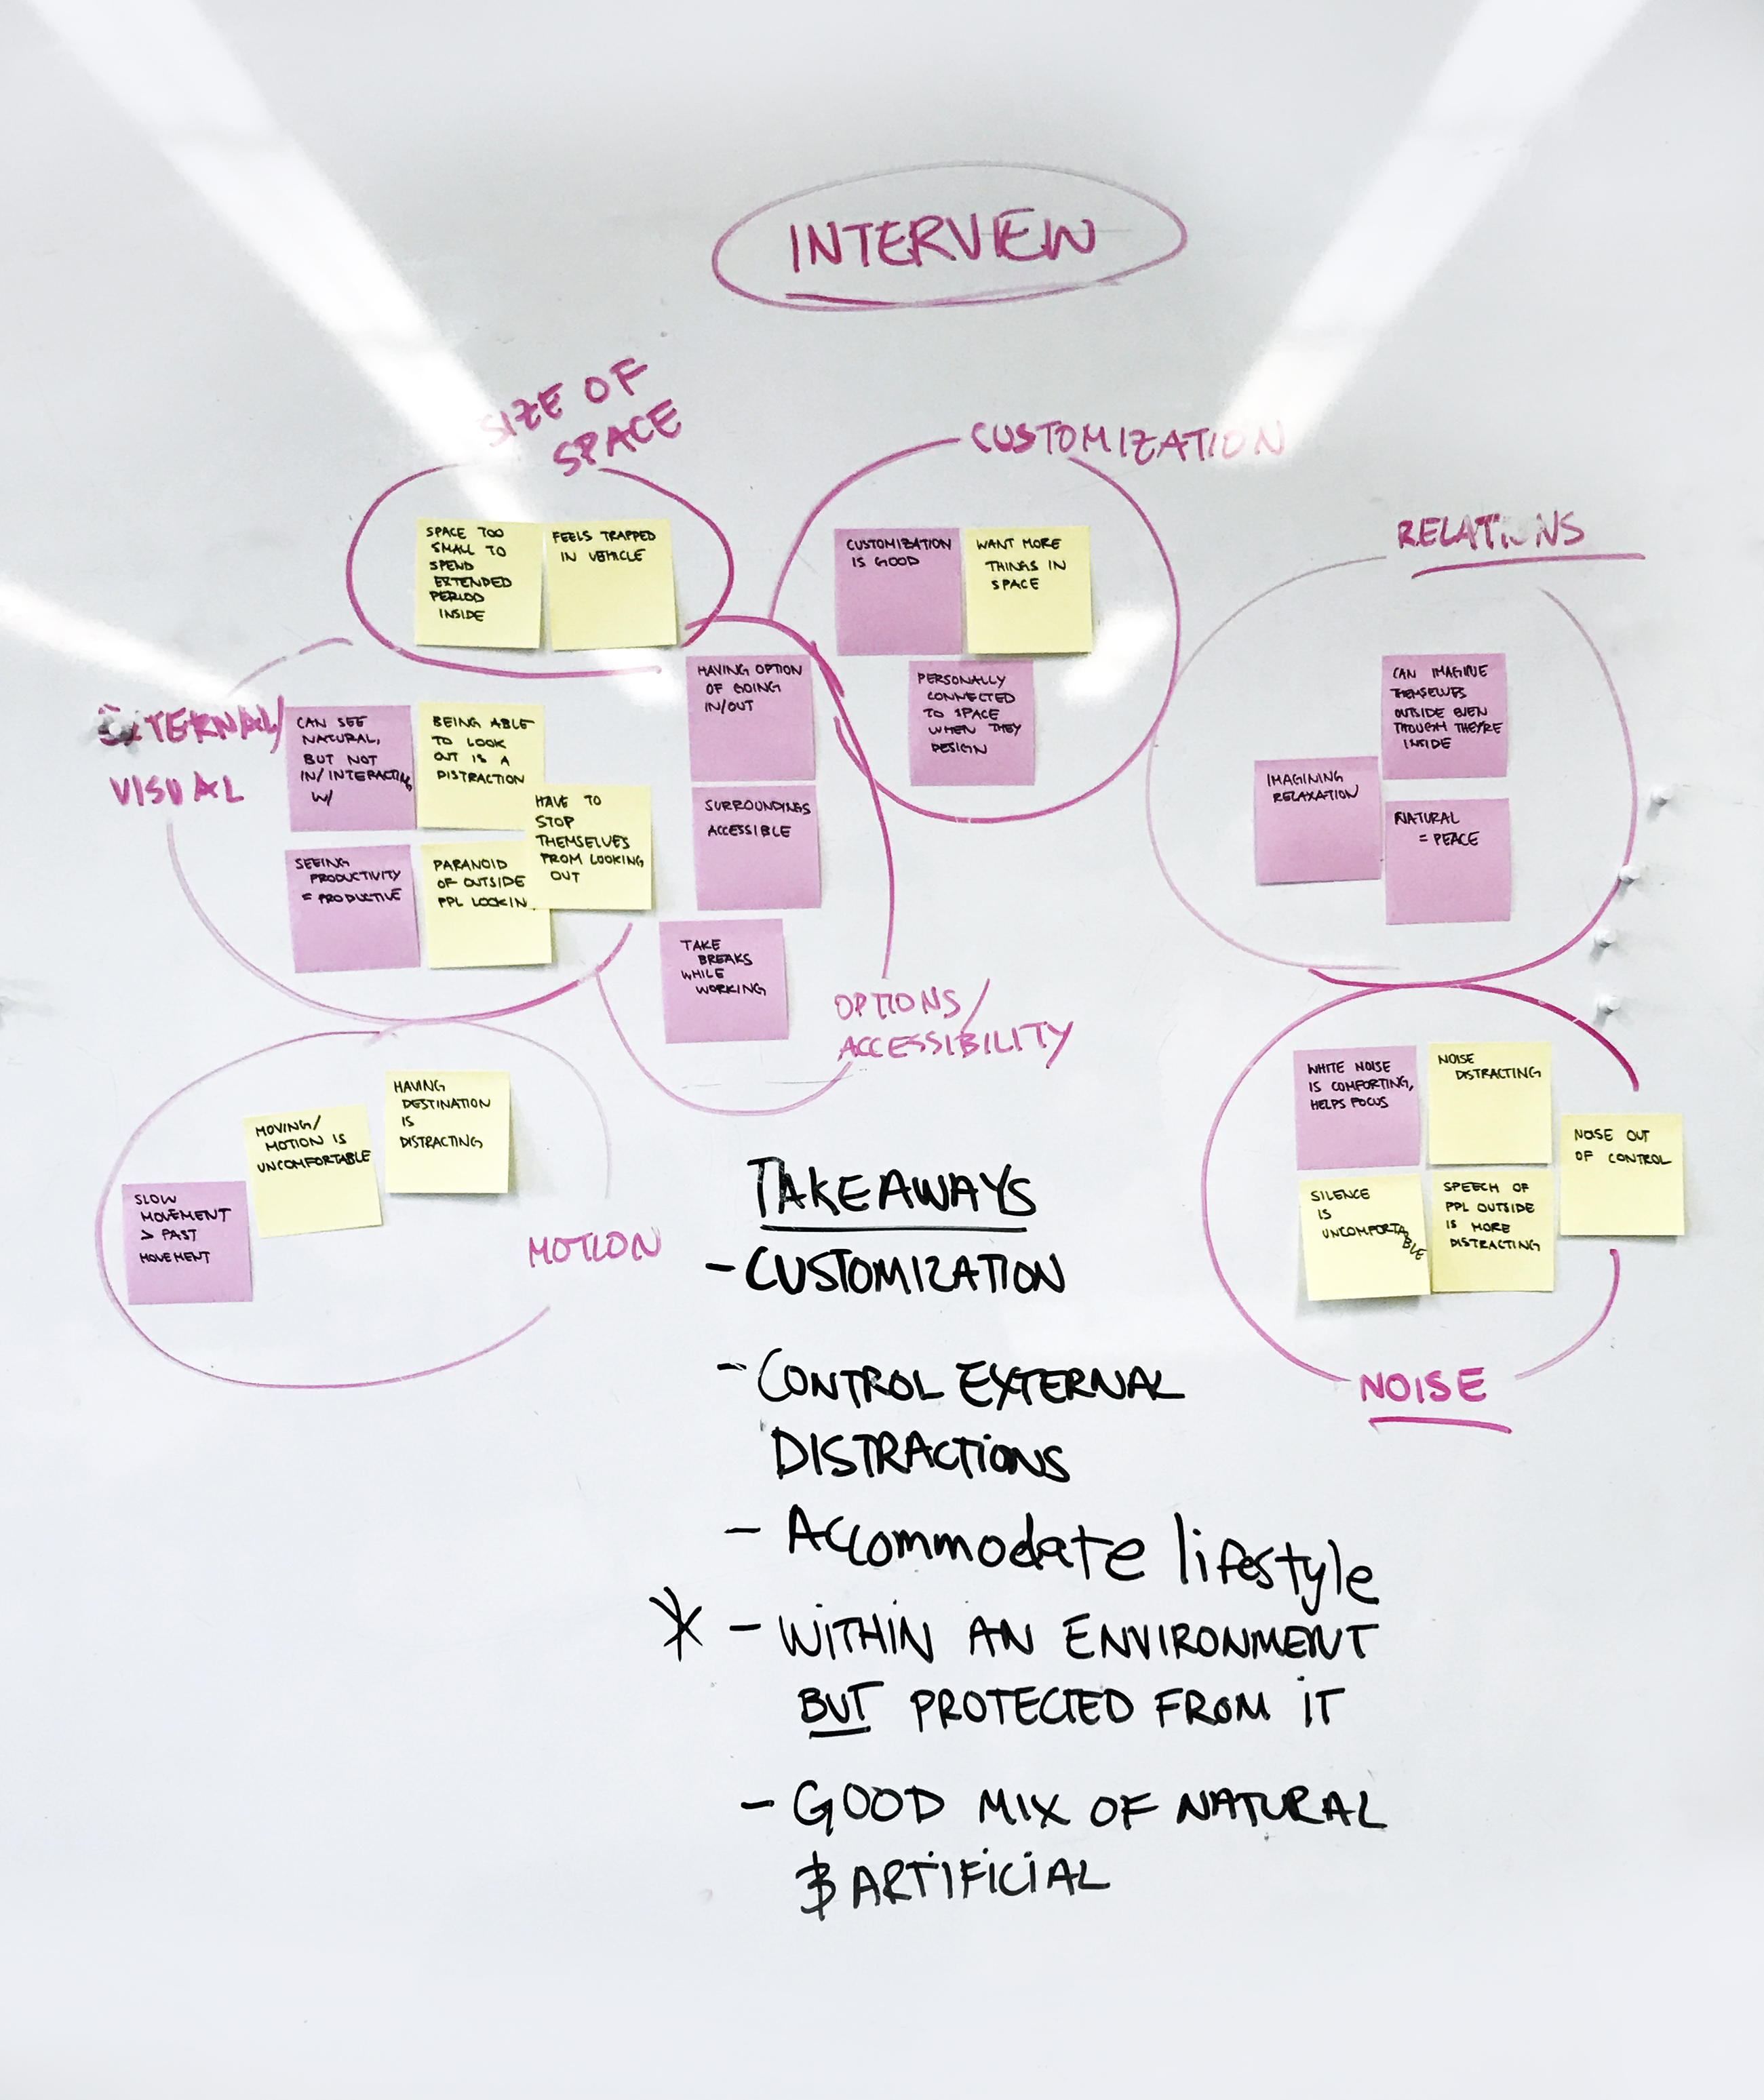 INTERVIEW
SIZE OF
SPACE
SPACE TOO
SMALL TO
SPEND
EXTENDED
PERIOD
INSIDE
FEELS TRAPPED
IN VEHICLE
CUSTOMIZATION
CUSTOMIZATION
IS GOOD
WANT MORE
THINGS IN
SPACE
PERSONALLY
CONNECTED
TO SPACE
WHEN THEY
DESIGN
RELATIONS
CAN IMAGINE
THEMSELVES
OUTSIDE EVEN
THOUGH THEY'RE
INSIDE
IMAGINING
RELAXATION
NATURAL
= PEACE
EXTERNAL/
VISUAL
CAN SEE
NATURAL,
BUT NOT
IN/INTERACTING
W/
BEING ABLE
TO LOOK
OUT IS A
DISTRACTION
HAVE TO
STOP
THEMSELVES
FROM LOOKING
OUT
SEEING
PRODUCTIVITY
= PRODUCTIVE
PARANOID
OF OUTSIDE
PPL LOOKIN
HAVING OPTION
OF GOING
IN/OUT
SURROUNDINGS
ACCESSIBLE
TAKE
BREAKS
WHILE
WORKING
OPTIONS/
ACCESSIBILITY
SLOW
MOVEMENT
> FAST
MOVEMENT
MOVING/
MOTION IS
UNCOMFORTABLE
HAVING
DESTINATION
IS
DISTRACTING
MOTION
WHITE NOISE
IS COMFORTING,
HELPS FOCUS
NOISE
DISTRACTING
NOISE OUT
OF CONTROL
SILENCE
IS
UNCOMFORTABLE
SPEECH OF
PPL OUTSIDE
IS MORE
DISTRACTING
NOISE
TAKEAWAYS
- CUSTOMIZATION
- CONTROL EXTERNAL
DISTRACTIONS
- Accommodate lifestyle
* - WITHIN AN ENVIRONMENT
BUT PROTECTED FROM IT
- GOOD MIX OF NATURAL
& ARTIFICIAL